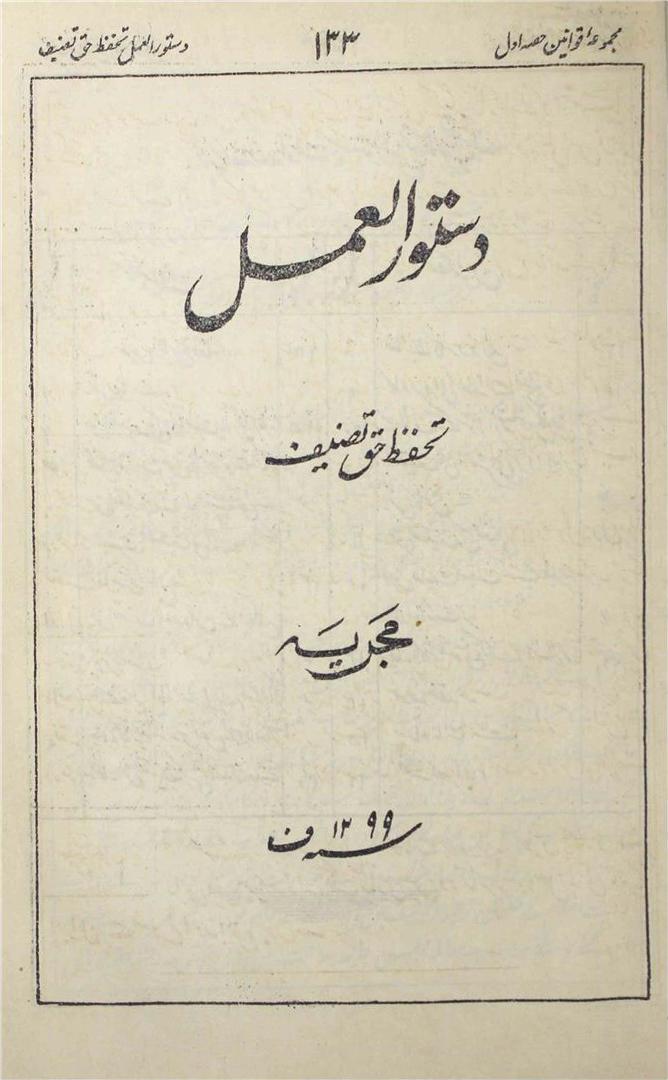 مجموعۂ قوانین حصہ اول ۱۳۳ دستور العمل تحفظ حق تصنیف
دستور العمل
تحفظ حق تصنیف
مجریہ
سنہ ۱۲۹۹ ف